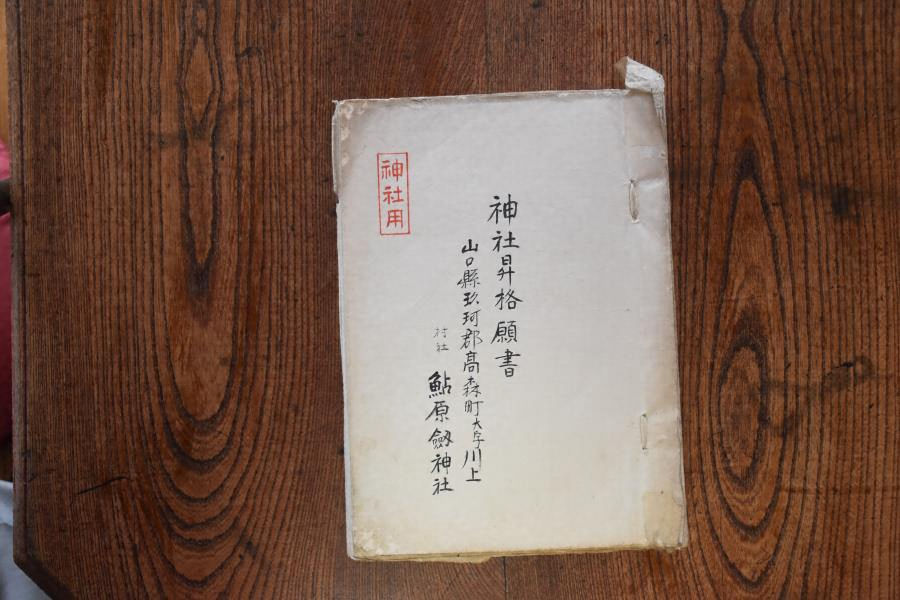 神社昇格願書
山口縣玖珂郡高森町大字川上
村社 鮎原劔神社
神社用